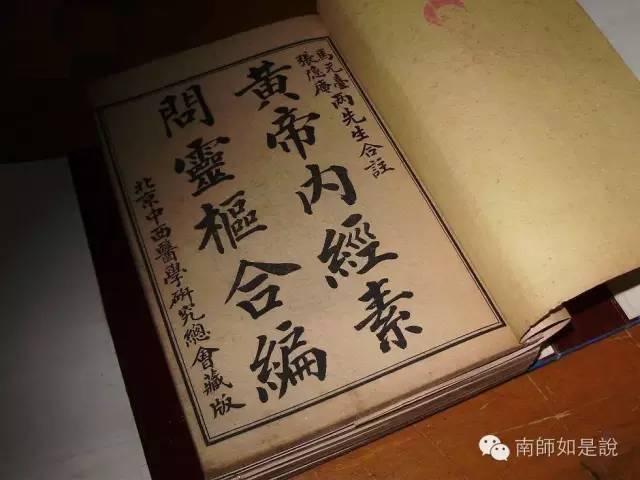 馬元臺
張隱庵
兩先生合註
黃帝內經素
問靈樞合編
北京中西醫學研究總會藏版
南師如是說